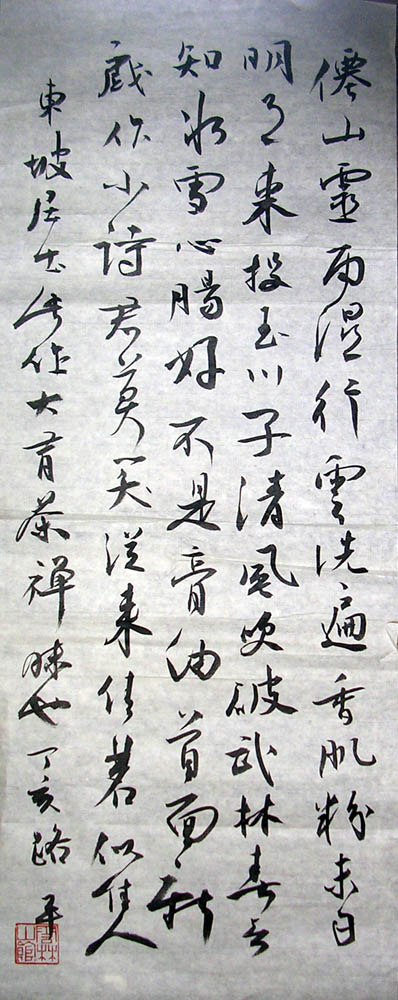 僊山靈雨湿行雲洗遍香肌粉未匀
明月来投玉川子清風吹破武林春要
知冰雪心腸好不是膏油首面新
戲作小詩君莫笑從来佳茗似佳人
東坡居士此作大有茶禅味也丁亥路平